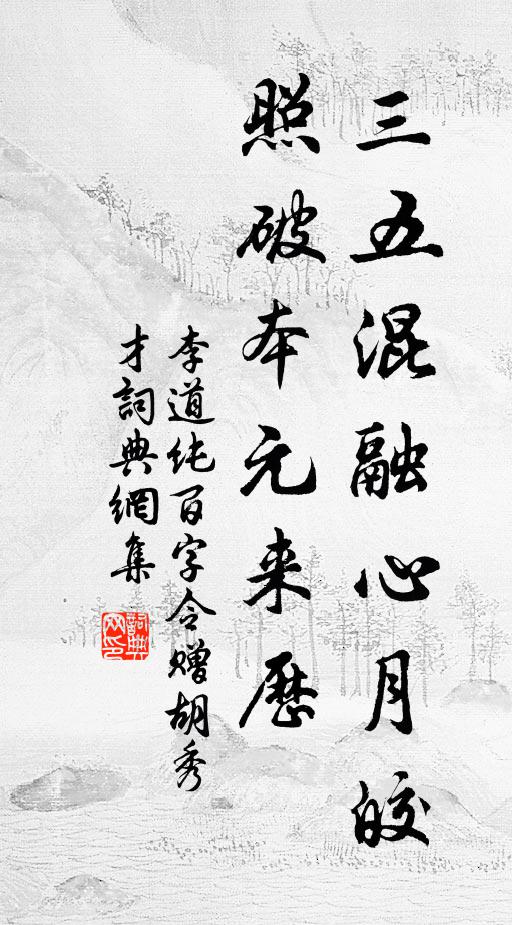 三五混融心月皎
照破本元来歷
李道纯百字令赠胡秀
才詞典網集
詞典
网印